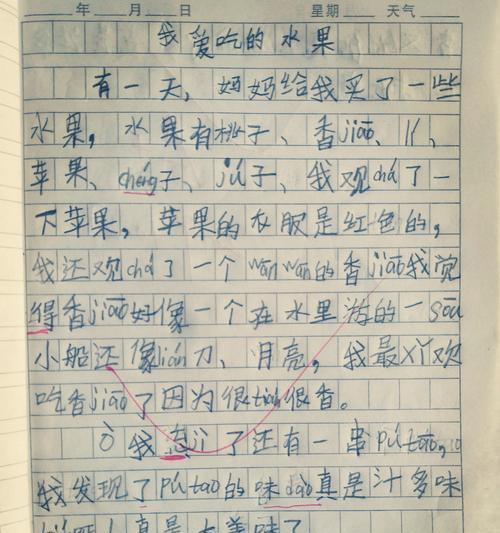 年 月 日 星期 天气
我爱吃的水果
有一天，妈妈给我买了一些
水果，水果有桃子、香jiāo、
苹果、chéng子、jú子、我观chá了一
下苹果，苹果的衣服是红色的，
我还观chá了一个wān wān的香jiāo我觉
得香jiāo好像一个在水里游的一sōu
小船还像lián刀、月亮，我最喜欢
吃香jiāo了因为很tián很香。
ò我忘jì了还有一串pú táo，
我发现了pú tao的味dào真是汁多味
真是太美味了